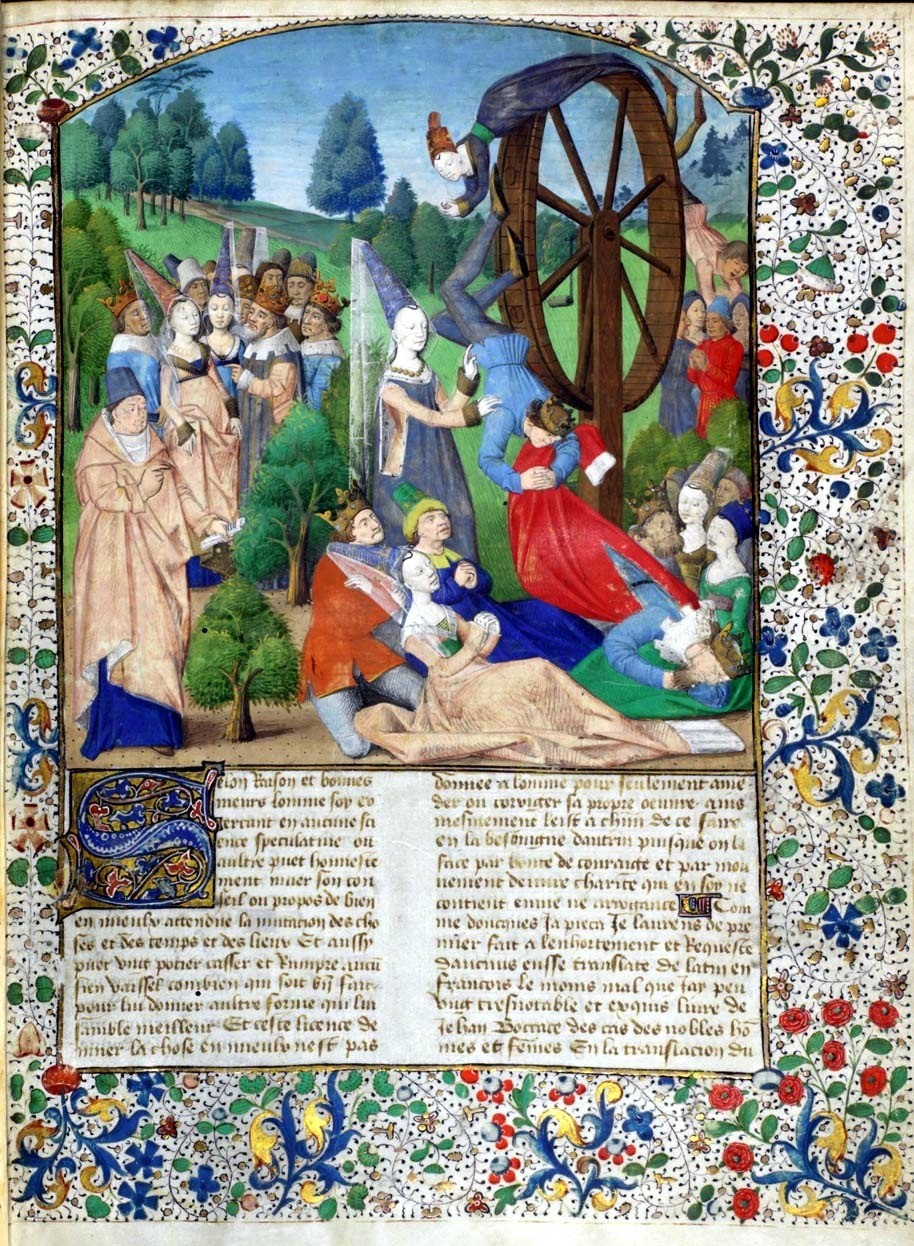 Selon Raison et bonnes
meurs lomme soy ex
ercant en aucune sci
ence speculative ou
aultre puet honneste
ment muer son con
seil ou propos de bien
en mieulx attendue la mutation des cho
ses et des temps et des lieux Et aussy
puet ung potier casser et Rompre aucun
sien vaissel combien qui soit bn fait
pour lui donner aultre forme qui lui
samble meilleur Et ceste licence de
muer la chose en mieulx nest pas
donnee a lomme pour seulement ame
der ou corriger sa propre oeuvre ains
mesmement leist a chūn de ce faire
en la besoingne daultrui puisque on le
face par bonte de couraige et par mou
vement de vraye charite qui en soy ne
contient envie ne arrogance Com
me doncques Ja pieca Je laurens de pre
mier fait a lenhortement et Requeste
daucuns eusse translate de latin en
francois le moins mal que Jay peu
ung tresnotable et exquis livre de
Jehan Boccace des cas des nobles hō
mes et fēmes En la translacion du